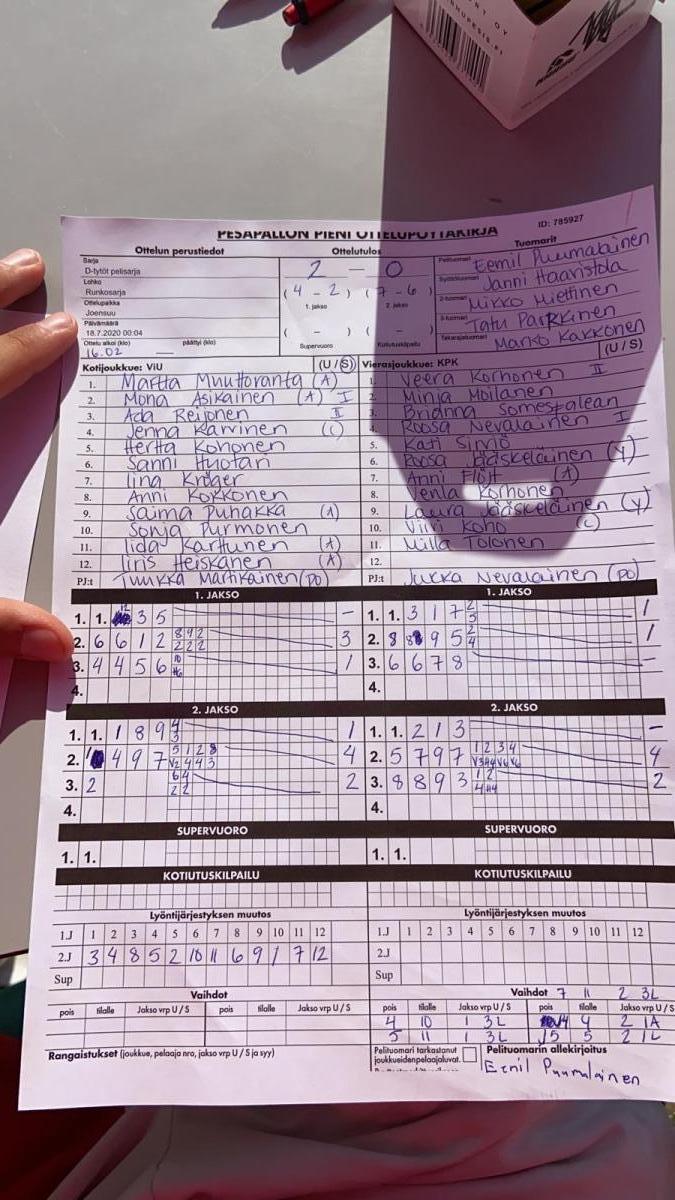 PESÄPALLON PIENI OTTELUPÖYTÄKIRJA
ID: 785927
Ottelun perustiedot
Ottelutulos
Tuomarit
Sarja
D-tytöt pelisarja
Lohko
Runkosarja
Ottelupaikka
Joensuu
Päivämäärä
18.7.2020 00:04
Ottelu alkoi (klo) päättyi (klo)
16.02
2 — 0
( 4 - 2 ) ( 7 - 6 )
1. jakso 2. jakso
( - ) ( - )
Supervuoro Kotiutuskilpailu
Pelituomari Eemil Puumalainen
Syöttötuomari Janni Haavistola
2-tuomari Mikko Miettinen
3-tuomari Tatu Parkkinen
Takarajatuomari Marko Kakkonen
Kotijoukkue: ViU (U / S)
1. Martta Muuttoranta (A)
2. Mona Asikainen (A) I
3. Ada Reijonen II
4. Jenna Karvinen (C)
5. Hertta Kohonen
6. Sanni Huotari
7. Iina Kröger
8. Anni Kokkonen
9. Saima Puhakka (A)
10. Sonja Purmonen
11. Iida Karttunen (A)
12. Iiris Heiskanen (A)
PJ:t Tuukka Martikainen (PO)
Vierasjoukkue: KPK (U / S)
1. Veera Korhonen II
2. Minja Moilanen
3. Brianna Somespalean
4. Roosa Nevalainen I
5. Kati Sirviö
6. Roosa Jääskeläinen (Y)
7. Anni Flöjt (A)
8. Venla Korhonen
9. Laura Jääskeläinen (Y)
10. Viivi Koho (C)
11. Milla Tolonen
12.
PJ:t Jukka Nevalainen (PO)
1. JAKSO
1. 1. 3 5 –
2. 6 6 1 2 8 9 2 3
2 2 2
3. 4 4 5 6 10 1
4.
1. JAKSO
1. 1. 3 1 7 2 1
5
2. 8 8 9 5 2 1
4
3. 6 6 7 8 –
4.
2. JAKSO
1. 1. 1 8 9 4 1
3
2. 4 9 7 5 1 2 8 4
V2 4 4 3
3. 2 6 4 2
2 2
4.
2. JAKSO
1. 1. 2 1 3 –
2. 5 7 9 7 1 2 3 4 4
3. 8 8 9 3 1 2 2
4.
SUPERVUORO
1. 1.
SUPERVUORO
1. 1.
KOTIUTUSKILPAILU
KOTIUTUSKILPAILU
Lyöntijärjestyksen muutos
1.J 1 2 3 4 5 6 7 8 9 10 11 12
2.J 3 4 8 5 2 10 11 6 9 1 7 12
Sup
Lyöntijärjestyksen muutos
1.J 1 2 3 4 5 6 7 8 9 10 11 12
2.J
Sup
Vaihdot
pois tilalle Jakso vrp U / S pois tilalle Jakso vrp U / S
Vaihdot 7 11 2 3L
pois tilalle Jakso vrp U / S pois tilalle Jakso vrp U / S
4 10 1 3L 4 2 1A
5 11 1 3L 5 2 1L
Rangaistukset (joukkue, pelaaja nro, jakso vrp U / S ja syy)
Pelituomari tarkastanut
joukkueiden pelaajaluvat.
Pelituomarin allekirjoitus
Eemil Puumalainen